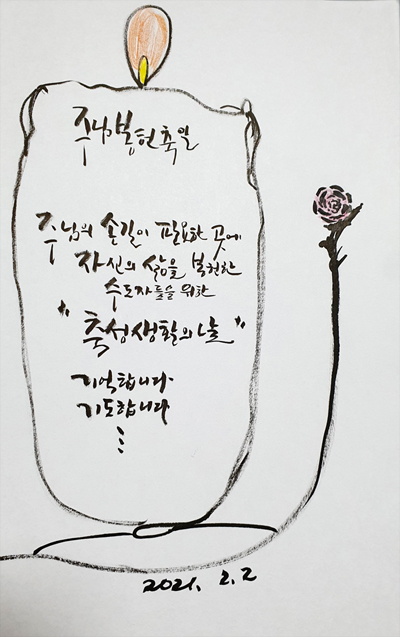 주님봉헌축일
주님의 손길이 필요한 곳에
자신의 삶을 봉헌한
수도자들을 위한
"축성생활의 날"
기억합니다.
기도합니다
⋮
2021. 2. 2